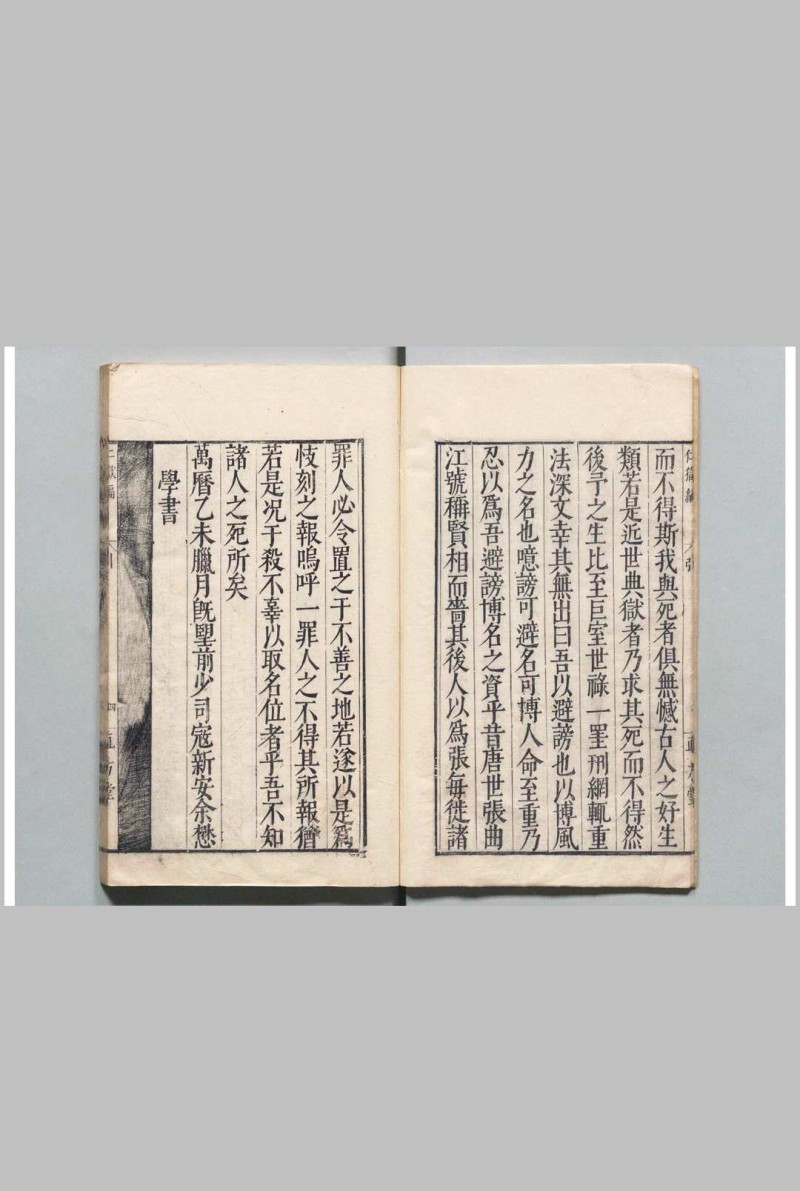 而不得斯我與死者俱無憾古人之好生
類若是近世典獄者乃求其死而不得然
後予之生比至巨室世祿一罣刑網輒重
法深文幸其無出曰吾以避謗也以博風
力之名也噫謗可避名可博人命至重乃
忍以爲吾避謗博名之資乎昔唐世張曲
江號稱賢相而嗇其後人以爲張每徙諸
罪人必令置之于不善之地若遂以是爲
忮刻之報嗚呼一罪人之不得其所報猶
若是况于殺不辜以取名位者乎吾不知
諸人之死所矣
萬曆乙未臘月旣望前少司寇新安余懋
學書
四